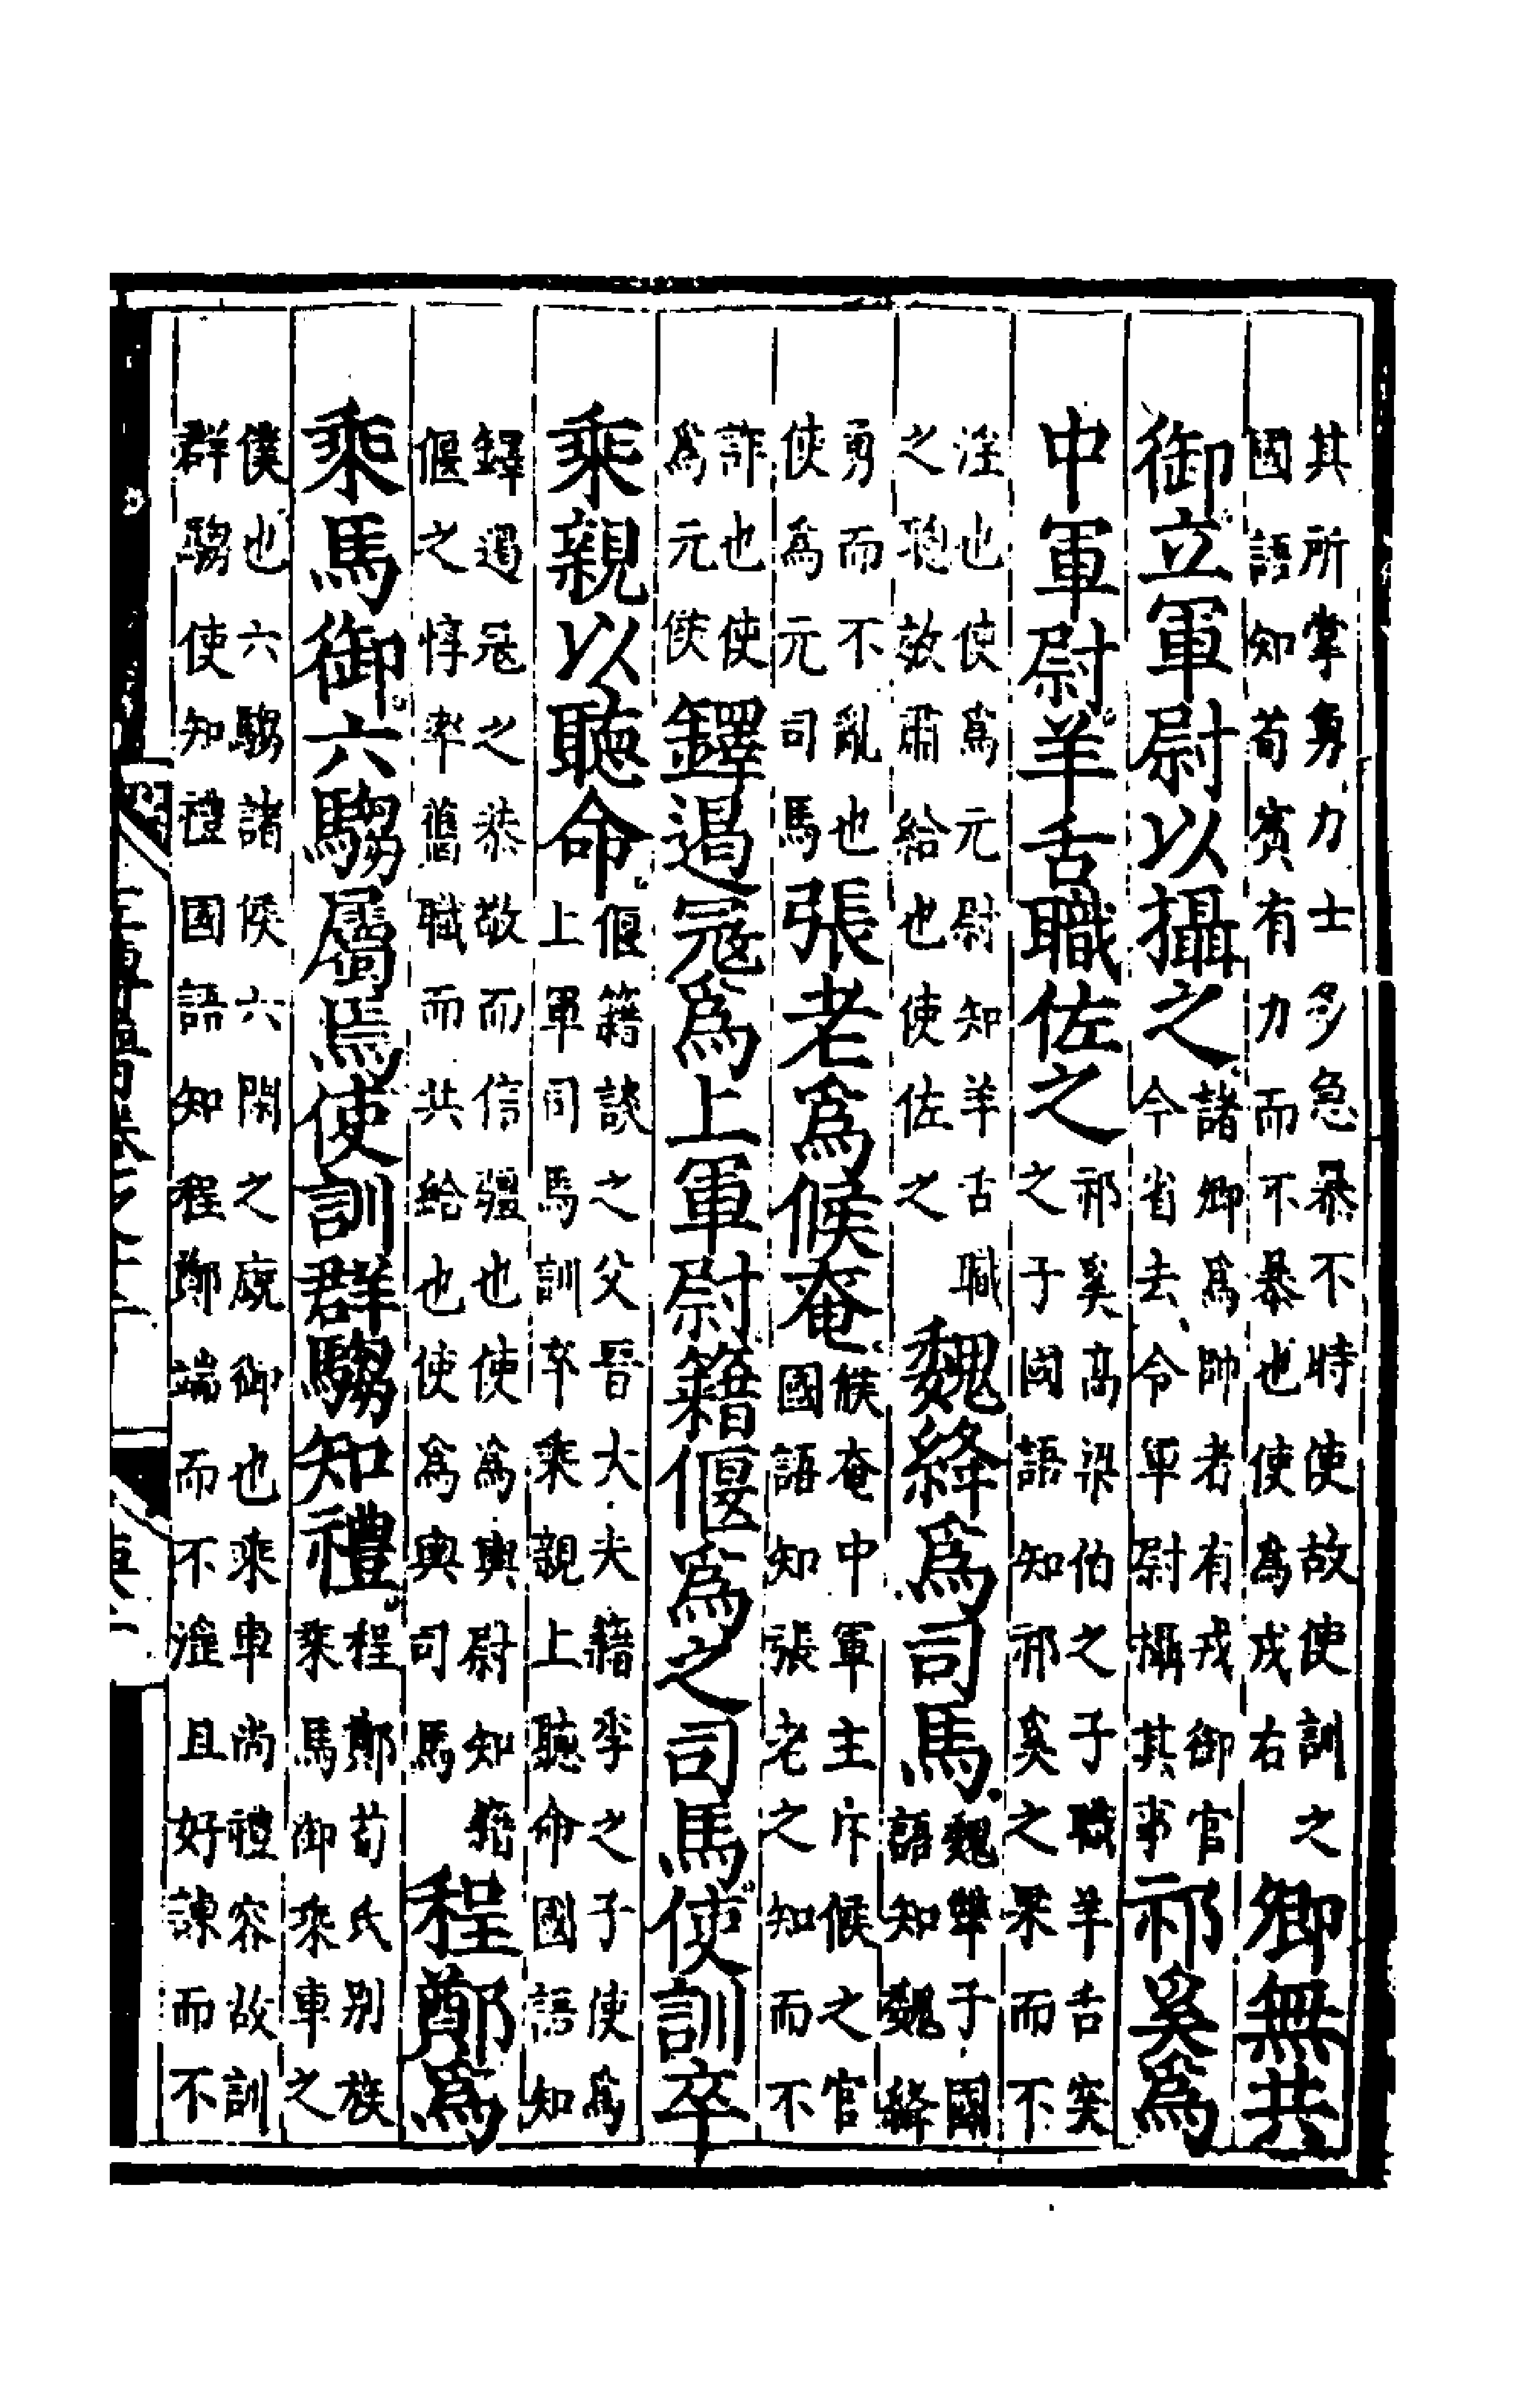 其所掌勇力士多急暴不時使故使訓之
國語知荀賓有力而不暴也使為戎右
卿無共
御立軍尉以攝之
諸卿為帥者有戎御官
今省去令軍尉攝其事
祁奚為
中軍尉羊舌職佐之
祁奚高梁伯之子職羊舌突
之子國語知祁奚之果而不
淫也使為元尉知羊舌職
之聰敏肅給也使佐之
魏絳為司馬
魏犨子國
語知魏絳
勇而不亂也
使為元司馬
張老為候奄
候奄中軍主斥候之官
國語知張老之知而不
詐也使
為元候
鐸遏寇為上軍尉籍偃為之司馬使訓卒
乘親以聽命
偃籍談之父晉大夫籍季之子使為
上軍司馬訓卒乘親上聽命國語知
鐸遏寇之恭敬而信彊也使為輿尉知籍
偃之惇率舊職而共給也使為輿司馬
程鄭為
乘馬御六騶屬焉使訓群騶知禮
程鄭荀氏別族
乘馬御乘車之
僕也六騶諸侯六閑之廄御也乘車尚禮容故訓
群騶使知禮國語知程鄭端而不淫且好諫而不